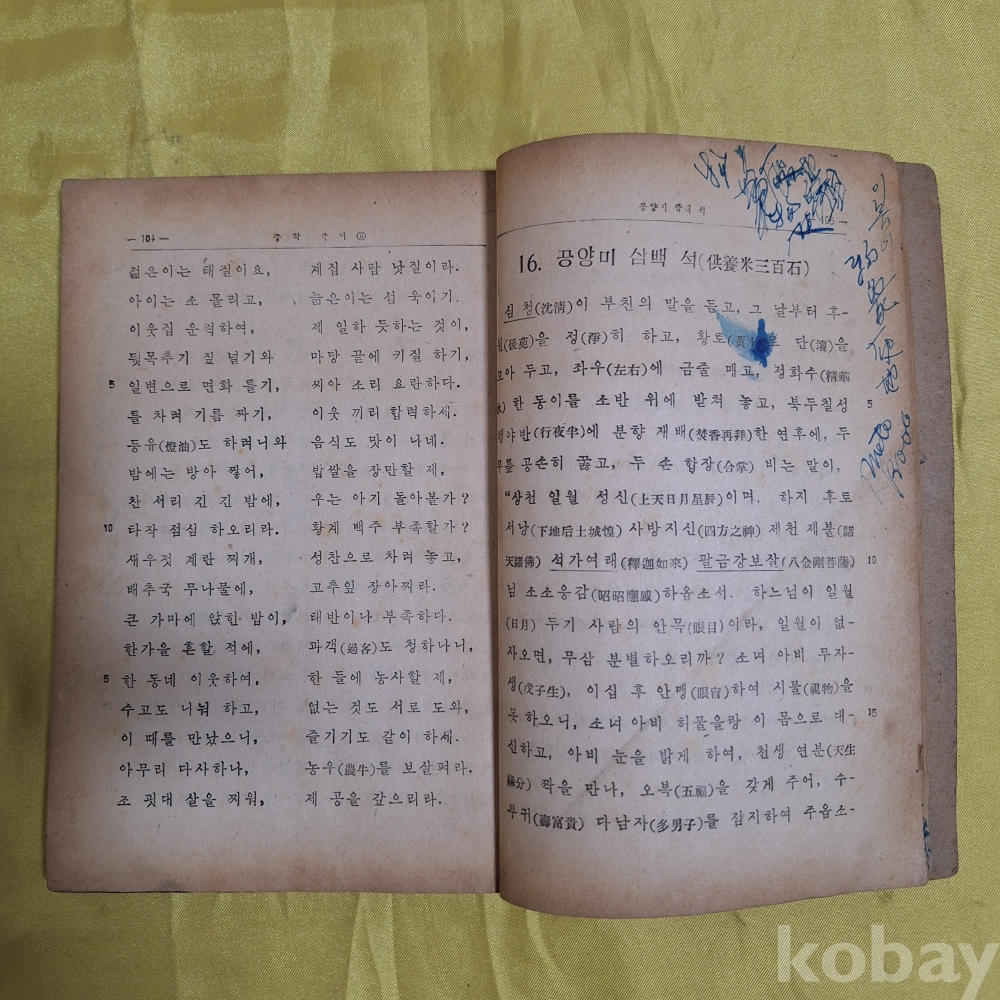 — 104 —
중 학 국 어
젊은이는 태질이요, 계집 사람 낫질이라.
아이는 소 몰리고, 늙은이는 섬 욱이기.
이웃집 운력하여, 제 일하 듯하는 것이,
뒷목추기 짚 널기와 마당 끝에 키질 하기,
5 일변으로 면화 틀기, 씨아 소리 요란하다.
틀 차려 기름 짜기, 이웃 끼리 합력하세.
등유(燈油)도 하려니와 음식도 맛이 나네.
밤에는 방아 찧어, 밥쌀을 장만할 제,
찬 서리 긴 긴 밤에, 우는 아기 돌아볼가?
10 타작 점심 하오리라. 황계 백주 부족할가?
새우젓 계란 찌개, 성찬으로 차려 놓고,
배추국 무나물에, 고추잎 장아찌라.
큰 가마에 앉힌 밥이, 태반이나 부족하다.
한가을 흔할 적에, 과객(過客)도 청하나니,
5 한 동네 이웃하여, 한 들에 농사할 제,
수고도 나눠 하고, 없는 것도 서로 도와,
이 때를 만났으니, 즐기기도 같이 하세.
아무리 다사하나, 농우(農牛)를 보살펴라.
조 핏대 살을 찌워, 제 공을 갚으리라.
공양미 삼백 석
105 —
16. 공양미 삼백 석(供養米三百石)
심 청(沈淸)이 부친의 말을 듣고, 그 날부터 후-
원(後苑)을 정(淨)히 하고, 황토(黃土)로 단(壇)을
모아 두고, 좌우(左右)에 금줄 매고, 정화수(精華
水) 한 동이를 소반 위에 받쳐 놓고, 북두칠성 5
행야반(行夜半)에 분향 재배(焚香再拜)한 연후에, 두
무릎 공손히 꿇고, 두 손 합장(合掌) 비는 말이,
“상천 일월 성신(上天日月星辰)이며, 하지 후토
서낭(下地后土城隍) 사방지신(四方之神) 제천 제불(諸
天諸佛) 석가여래(釋迦如來) 팔금강보살(八金剛菩薩) 10
님 소소응감(昭昭應感)하옵소서. 하느님이 일월
(日月) 두기 사람의 안목(眼目)이라, 일월이 없-
사오면, 무삼 분별하오리까? 소녀 아비 무자-
생(戊子生), 이십 후 안맹(眼盲)하여 시물(視物)을
못 하오니, 소녀 아비 허물을랑 이 몸으로 대- 15
신하고, 아비 눈을 밝게 하여, 천생 연분(天生
緣分) 짝을 만나, 오복(五福)을 갖게 주어, 수-
부귀(壽富貴) 다남자(多男子)를 점지하여 주옵소-
kobay